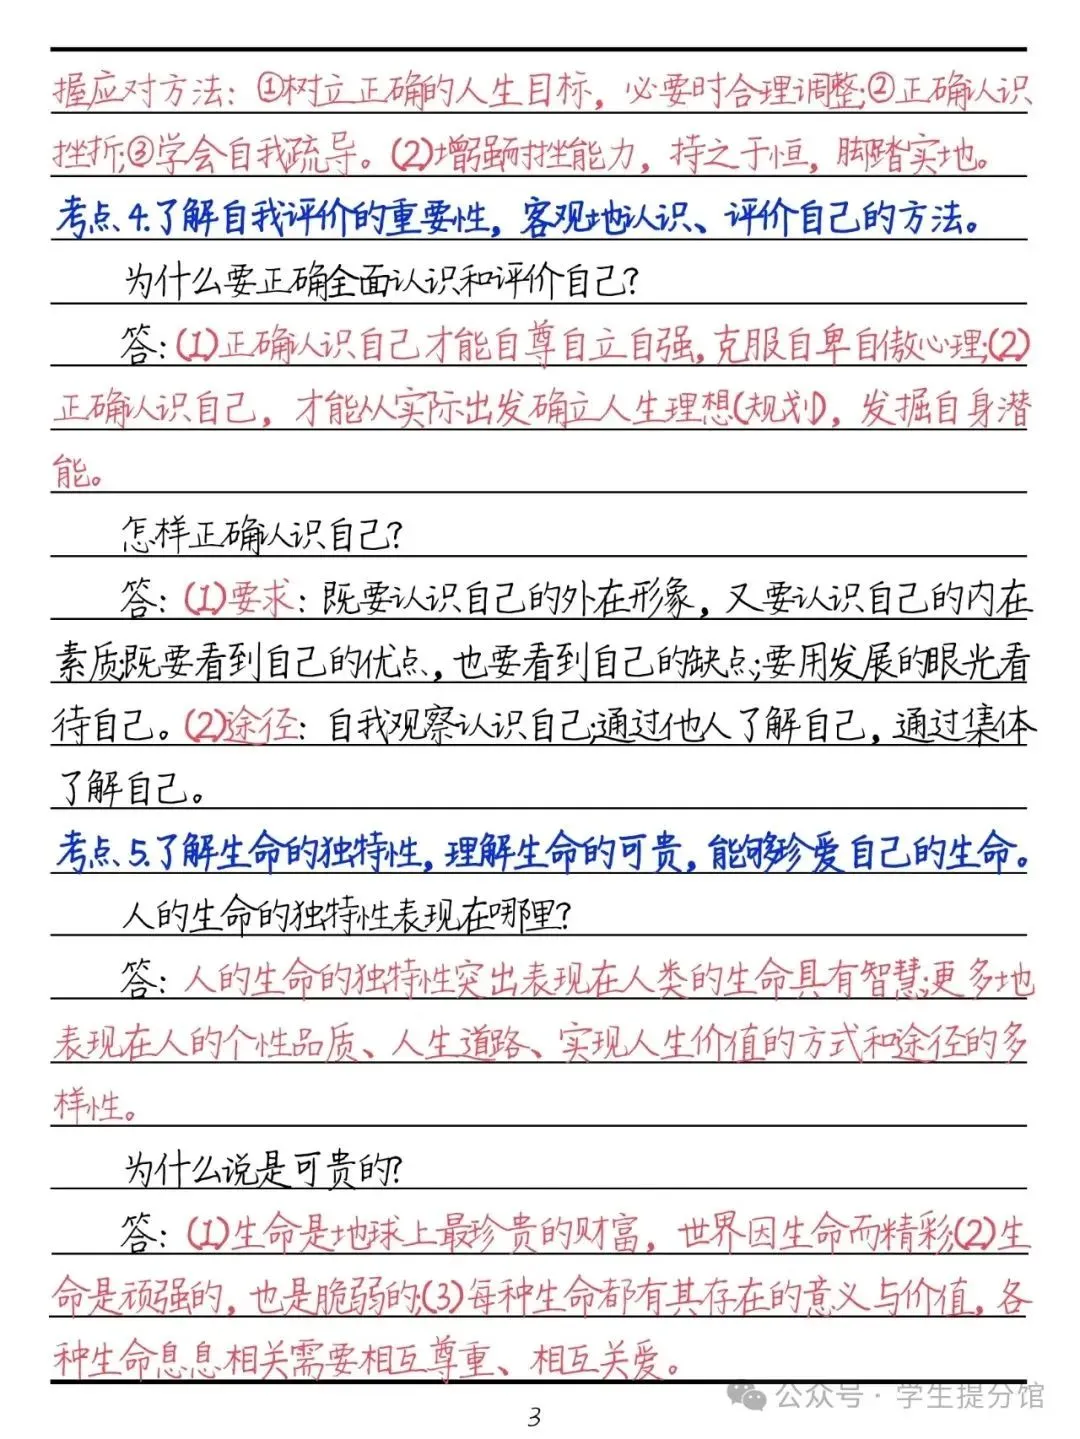 握应对方法：①树立正确的人生目标，必要时合理调整;②正确认识
挫折;③学会自我疏导。(2)增强耐挫能力，持之于恒，脚踏实地。
考点、4.了解自我评价的重要性，客观地认识、评价自己的方法。
为什么要正确全面认识和评价自己?
答：(1)正确认识自己才能自尊自立自强,克服自卑自傲心理;(2)
正确认识自己，才能从实际出发确立人生理想(规划)，发掘自身潜
能。
怎样正确认识自己?
答：(1)要求：既要认识自己的外在形象，又要认识自己的内在
素质;既要看到自己的优点，也要看到自己的缺点;要用发展的眼光看
待自己。(2)途径：自我观察认识自己;通过他人了解自己，通过集体
了解自己。
考点、5.了解生命的独特性，理解生命的可贵，能够珍爱自己的生命。
人的生命的独特性表现在哪里?
答：人的生命的独特性突出表现在人类的生命具有智慧;更多地
表现在人的个性品质、人生道路、实现人生价值的方式和途径的多
样性。
为什么说是可贵的?
答：(1)生命是地球上最珍贵的财富，世界因生命而精彩;(2)生
命是顽强的，也是脆弱的;(3)每种生命都有其存在的意义与价值，各
种生命息息相关需要相互尊重、相互关爱。
公众号·学生提分馆
3